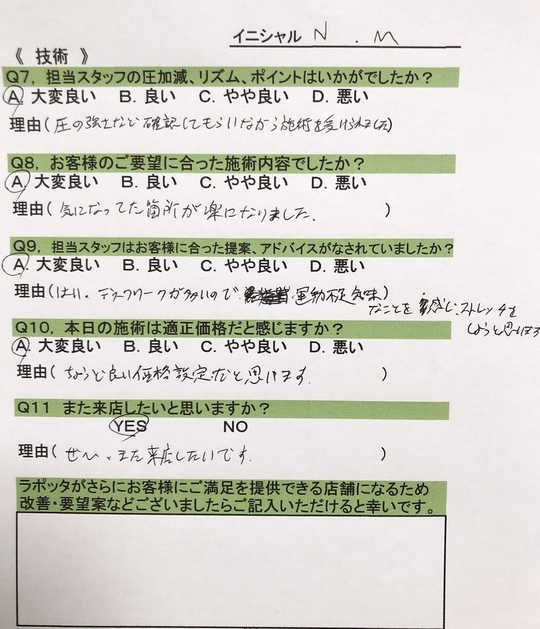 イニシャル N . M
《 技術 》
Q7, 担当スタッフの圧加減、リズム、ポイントはいかがでしたか？
A. 大変良い B. 良い C. やや良い D. 悪い
理由( 圧の強さなど確認してもらいながら施術を受けられました)
Q8, お客様のご要望に合った施術内容でしたか？
A. 大変良い B. 良い C. やや良い D. 悪い
理由( 気になってた箇所が楽になりました。 )
Q9, 担当スタッフはお客様に合った提案、アドバイスがなされていましたか？
A. 大変良い B. 良い C. やや良い D. 悪い
理由( はい。デスクワークが多いので 運動不足気味)
なことを 感じ、ストレッチを
しようと思います
Q10, 本日の施術は適正価格だと感じますか？
A. 大変良い B. 良い C. やや良い D. 悪い
理由( ちょうど良い価格設定だと思います。 )
Q11 また来店したいと思いますか？
YES NO
理由( ぜひ、また来店したいです。 )
ラポッタがさらにお客様にご満足を提供できる店舗になるため
改善・要望案などございましたらご記入いただけると幸いです。